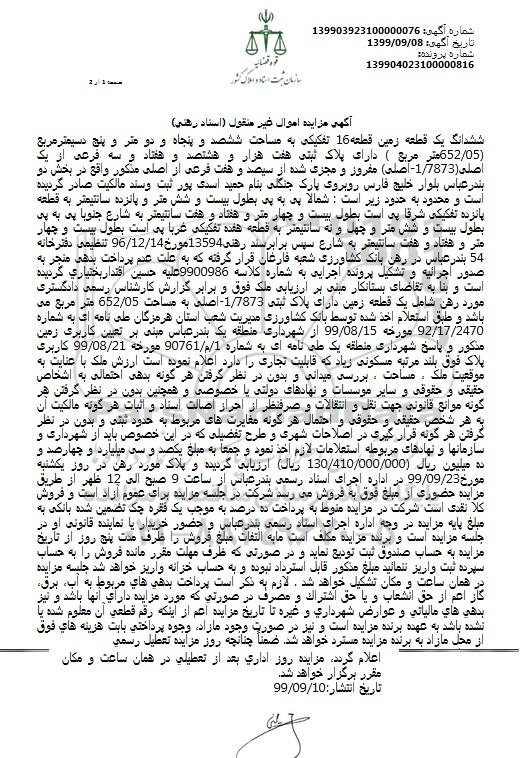 شماره آگهی: 139903923100000076
تاریخ آگهی: 1399/09/08
شماره پرونده:
139904023100000816
قوه قضاییه
سازمان ثبت اسناد و املاک کشور
صفحه 1 از 2
آگهي مزايده اموال غير منقول (اسناد رهني)
ششدانگ يک قطعه زمين قطعه16 تفکيکي به مساحت ششصد و پنجاه و دو متر و پنج دسيمترمربع
(652/05متر مربع ) داراي پلاک ثبتي هفت هزار و هشتصد و هفتاد و سه فرعي از يک
اصلي(1/7873-اصلي) مفروز و مجزي شده از سيصد و هفت فرعي از اصلي مذکور واقع در بخش دو
بندرعباس بلوار خليج فارس روبروي پارک جنگلي بنام حميد اسدي پور ثبت وسند مالکيت صادر گرديده
است و محدود به حدود زير است : شمالا پي به پي بطول بيست و شش متر و پانزده سانتيمتر به قطعه
پانزده تفکيکي شرقا پي است بطول بيست و چهار متر و هفتاد و هفت سانتيمتر به شارع جنوبا پي به پي
بطول بيست و شش متر و چهل و نه سانتيمتر به قطعه هفده تفکيکي غربا پي است بطول بيست و چهار
متر و هفتاد و هفت سانتيمتر به شارع سپس برابرسند رهني13594مورخ96/12/14 تنظيمي دفترخانه
54 بندرعباس در رهن بانک کشاورزي شعبه فارغان قرار گرفته که به علت عدم پرداخت بدهي منجر به
صدور اجرائيه و تشکيل پرونده اجرايي به شماره کلاسه 9900986عليه حسين اقتداربختياري گرديده
است و بنا به تقاضاي بستانکار مبني بر ارزيابي ملک فوق و برابر گزارش کارشناس رسمي دادگستري
مورد رهن شامل يک قطعه زمين داراي پلاک ثبتي 1/7873-اصلي به مساحت 652/05 متر مربع مي
باشد و طبق استعلام اخذ شده توسط بانک کشاورزي مديريت شعب استان هرمزگان طي نامه اي به شماره
92/17/2470 مورخه 99/08/15 از شهرداري منطقه يک بندرعباس مبني بر تعيين کاربري زمين
مذکور و پاسخ شهرداري منطقه يک طي نامه اي به شماره 1/م/90761 مورخه 99/08/21 کاربري
پلاک فوق بلند مرتبه مسکوني زياد که قابليت تجاري را دارد اعلام نموده است ارزش ملک با عنايت به
موقعيت ملک ، مساحت ، بررسي ميداني و بدون در نظر گرفتن هر گونه بدهي احتمالي به اشخاص
حقيقي و حقوقي و ساير موسسات و نهادهاي دولتي يا خصوصي و همچنين بدون در نظر گرفتن هر
گونه موانع قانوني جهت نقل و انتقالات و صرفنظر از احراز اصالت اسناد و اثبات هر گونه مالکيت آن
به هر شخص حقيقي و حقوقي و احتمال هر گونه مغايرت هاي مربوط به حدود ثبتي و بدون در نظر
گرفتن هر گونه قرار گيري در اصلاحات شهري و طرح تفصيلي که در اين خصوص بايد از شهرداري و
سازمانها و نهادهاي مربوطه استعلامات لازم اخذ نمود و جمعا به مبلغ يکصد و سي ميليارد و چهارصد و
ده ميليون ريال (130/410/000/000 ريال) ارزيابي گرديده و پلاک مورد رهن در روز يکشنبه
مورخ99/09/23 در اداره اجراي اسناد رسمي بندرعباس از ساعت 9 صبح الي 12 ظهر از طريق
مزايده حضوري از مبلغ فوق به فروش مي رسد شرکت در جلسه مزايده براي عموم آزاد است و فروش
کلا نقدي است شرکت در مزايده منوط به پرداخت ده درصد به موجب يک فقره چک تضمين شده بانکي به
مبلغ پايه مزايده در وجه اداره اجراي اسناد رسمي بندرعباس و حضور خريدار يا نماينده قانوني او در
جلسه مزايده است و برنده مزايده مکلف است مابه التفات مبلغ فروش را ظرف مدت پنج روز از تاريخ
مزايده به حساب صندوق ثبت توديع نمايد و در صورتي که ظرف مهلت مقرر مانده فروش را به حساب
سپرده ثبت واريز ننمائيد مبلغ مذکور قابل استرداد نبوده و به حساب خزانه واريز خواهد شد جلسه مزايده
در همان ساعت و مکان تشکيل خواهد شد . لازم به ذکر است پرداخت بدهي هاي مربوط به آب، برق،
گاز اعم از حق انشعاب و يا حق اشتراک و مصرف در صورتي که مورد مزايده داراي آنها باشد و نيز
بدهي هاي مالياتي و عوارض شهرداري و غيره تا تاريخ مزايده اعم از اينکه رقم قطعي آن معلوم شده يا
نشده باشد به عهده برنده مزايده است و نيز در صورت وجود مازاد، وجوه پرداختي بابت هزينه هاي فوق
از محل مازاد به برنده مزايده مسترد خواهد شد. ضمناً چنانچه روز مزايده تعطيل رسمي
اعلام گردد، مزايده روز اداري بعد از تعطيلي در همان ساعت و مکان
مقرر برگزار خواهد شد.
تاریخ انتشار:99/09/10